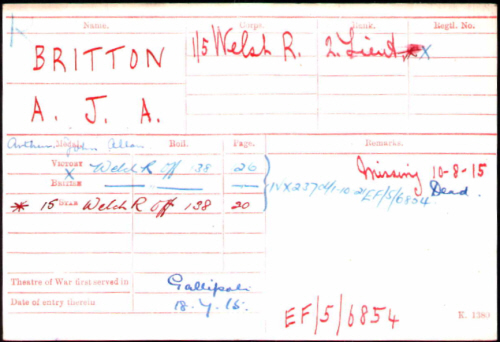 Name. Corps. Rank. Regtl. No.
BRITTON 1/5 Welsh R. 2. Lieut X
A. J. A.
Arthur John Allan
Medal. Roll. Page. Remarks.
VICTORY Welch R Off 138 26 Missing 10-8-15
X
BRITISH Dead.
EF/5/6854
* 15 STAR Welch R Off 138 20
Theatre of War first served in Gallipoli
Date of entry therein 18.7.15.
EF/5/6854 K. 1380